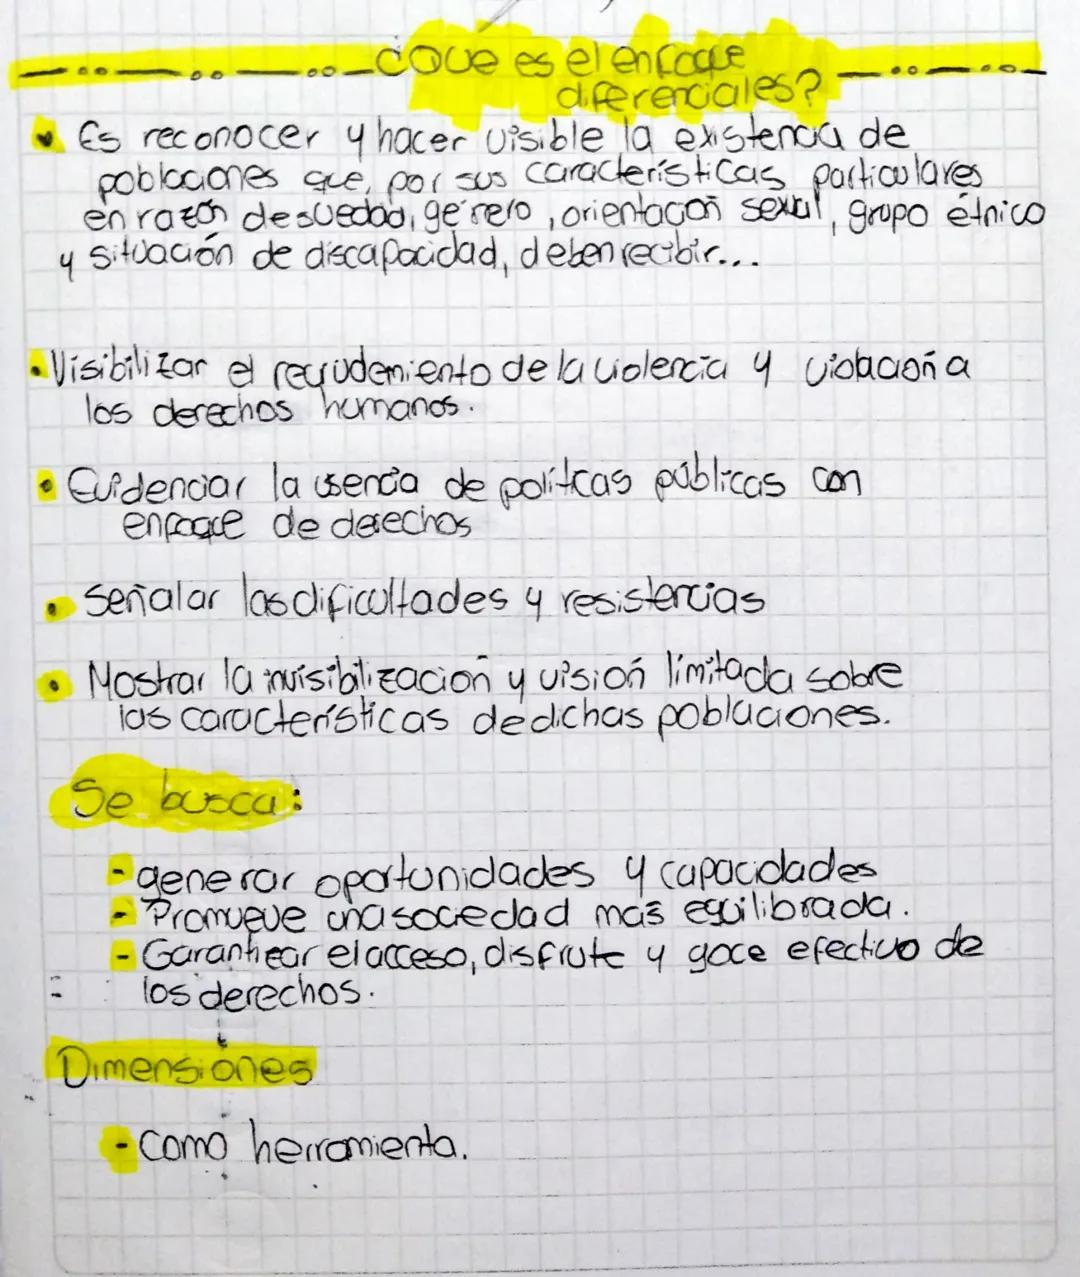 ¿Qué es el enfoque
diferenciales?
Es reconocer y hacer visible la existencia de
poblaciones que, por sus características particulares
en razón de su edad, género, orientación sexual, grupo étnico
y situación de discapacidad, deben recibir...
• Visibilizar el recrudemiento de la violencia y violación a
los derechos humanos.
• Evidenciar la usencia de polítcas públicas con
enfoque de derechos
• Señalar las dificultades y resistencias
• Mostrar la invisibilización y visión limitada sobre
las características de dichas poblaciones.
Se busca:
- generar oportunidades y capacidades
- Promueve una sociedad más equilibrada.
- Garantizar el acceso, disfrute y goce efectivo de
los derechos.
Dimensiones
- Como herramienta.